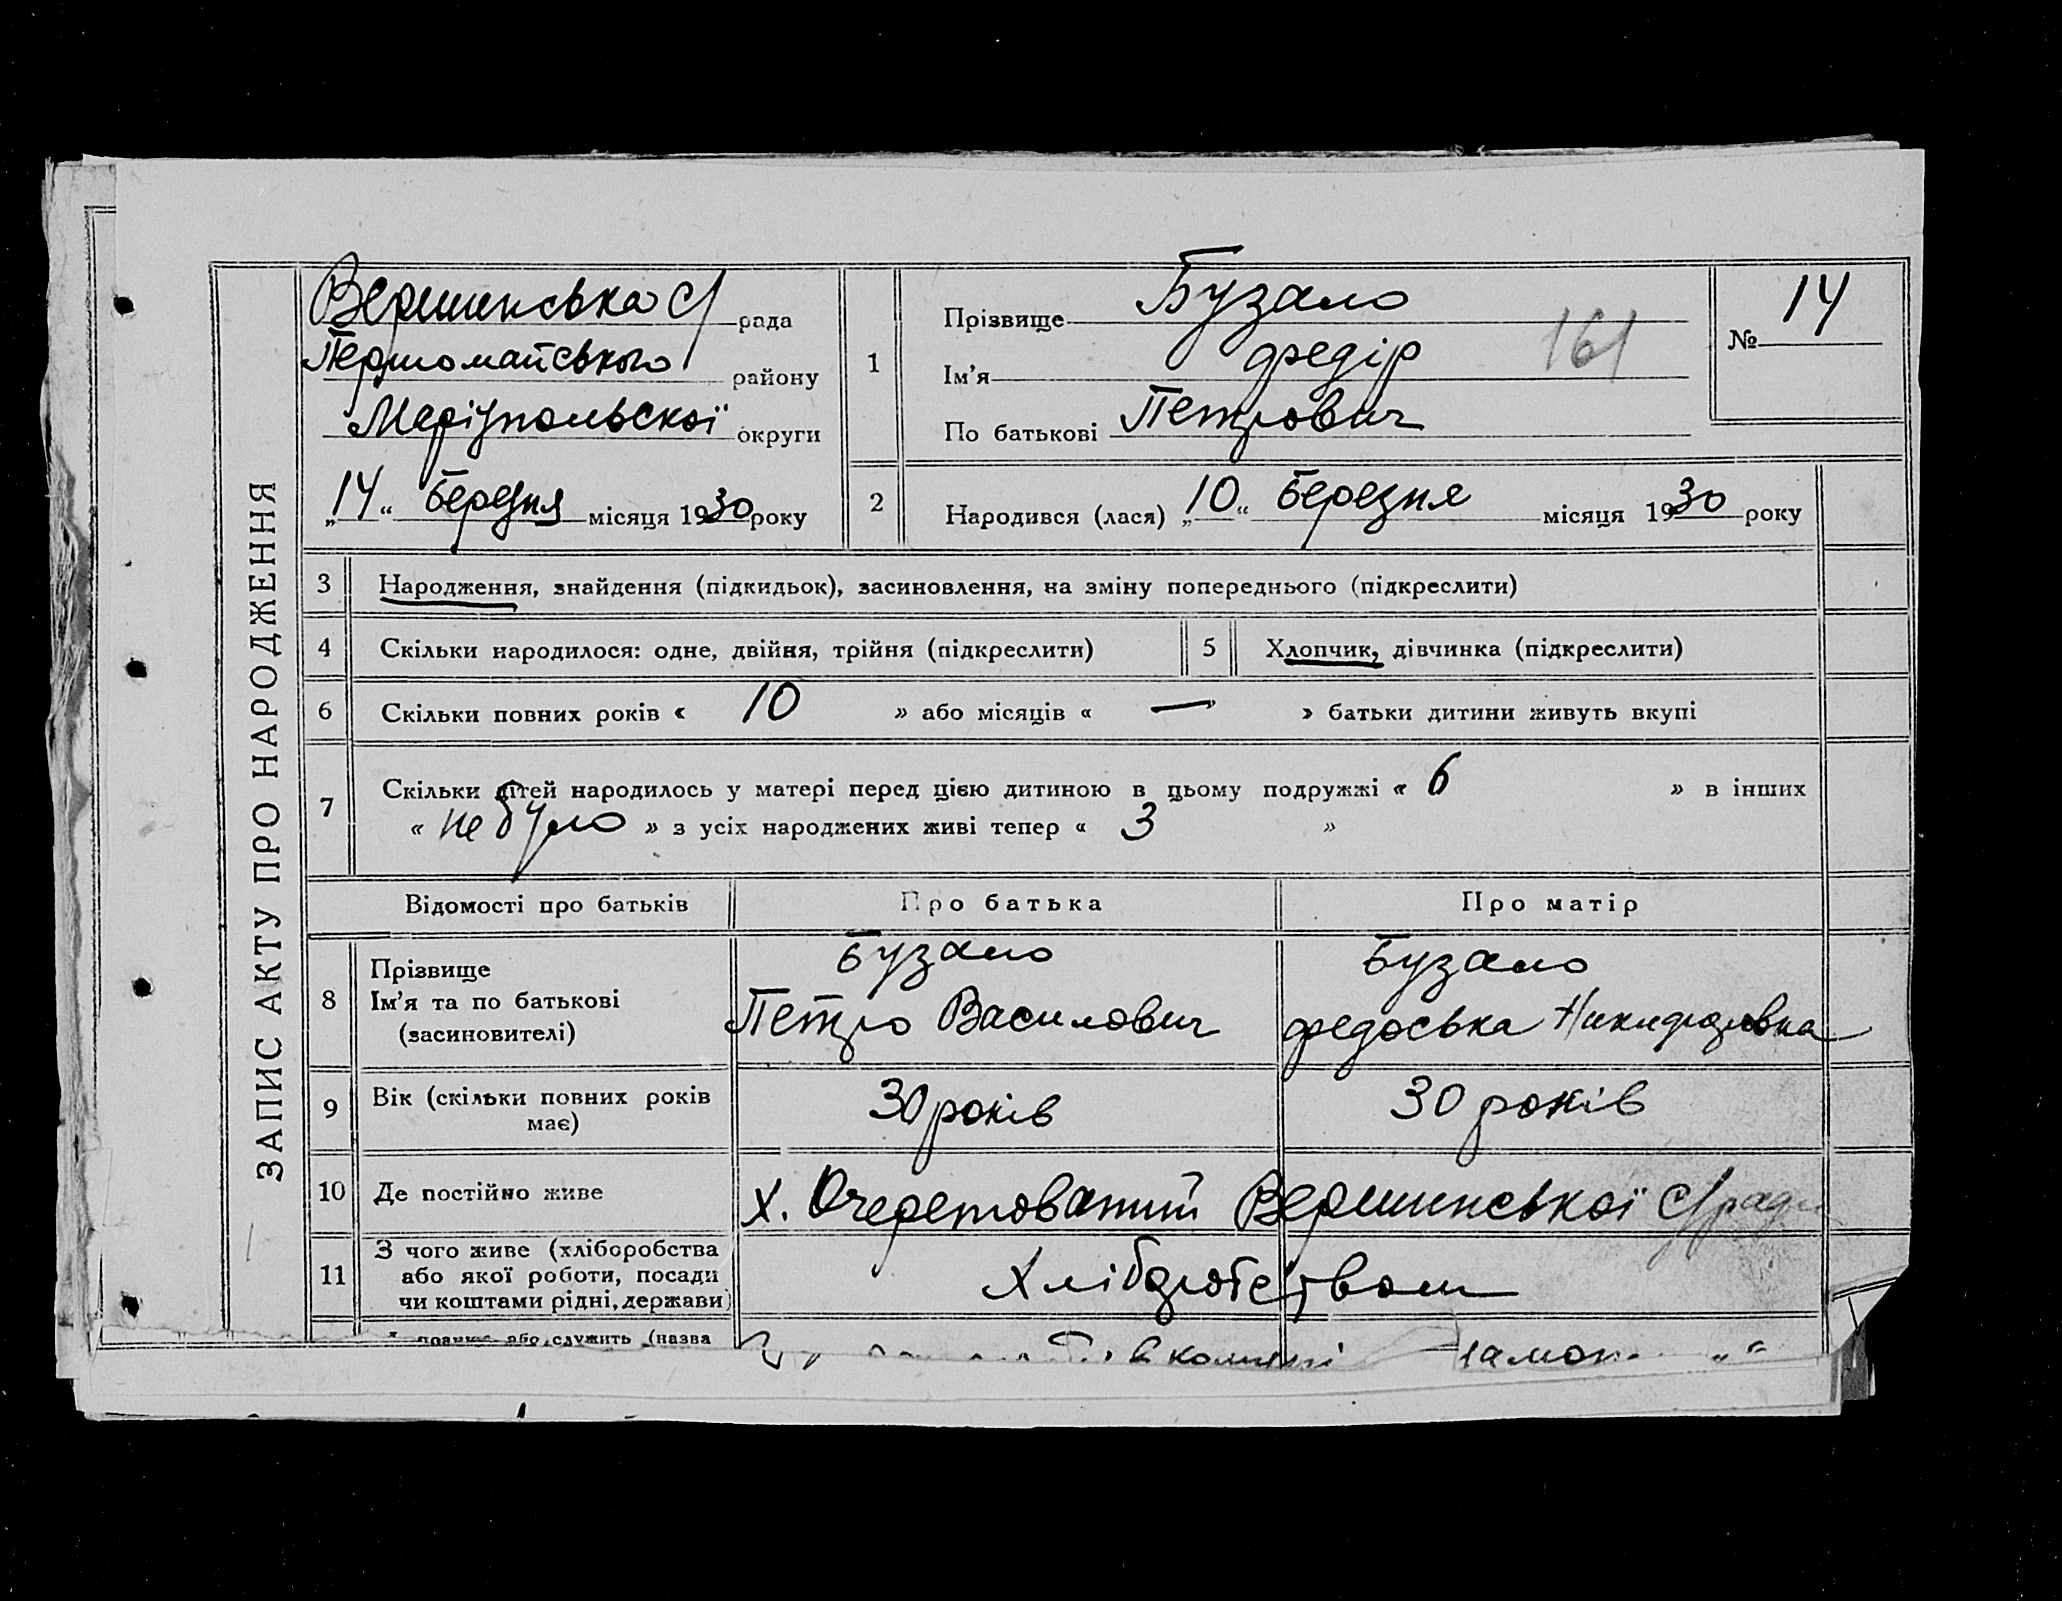 ЗАПИС АКТУ ПРО НАРОДЖЕННЯ
Вершинська с/рада
Першомайського району
Маріупольскої округи
„14“ березня місяця 1930 року
1
Прізвище Бузало
Ім'я Федір
По батькові Петрович
161
№ 14
2
Народився (лася) „10“ березня місяця 1930 року
3 Народження, знайдення (підкидьок), засиновлення, на зміну попереднього (підкреслити)
4 Скільки народилося: одне, двійня, трійня (підкреслити)
5 Хлопчик, дівчинка (підкреслити)
6 Скільки повних років « 10 » або місяців « — » батьки дитини живуть вкупі
7 Скільки дітей народилось у матері перед цією дитиною в цьому подружжі « 6 » в інших
« не було » з усіх народжених живі тепер « 3 »
Відомості про батьків Про батька Про матір
8 Прізвище
Ім'я та по батькові
(засиновителі)
Бузало
Петро Василович
Бузало
Федоська Никифоровна
9 Вік (скільки повних років
має)
30 років
30 років
10 Де постійно живе
х. Очеретоватий Вершинської с/ради
11 З чого живе (хліборобства
або якої роботи, посади
чи коштами рідні, держави)
Хліборобством
або служить (назва